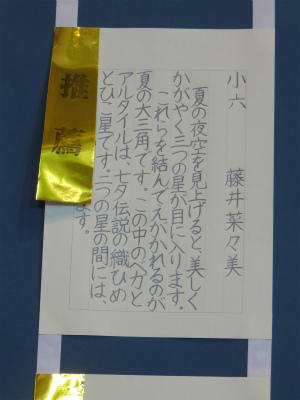 推薦
小六 藤井菜々美
夏の夜空を見上げると、美しく
かがやく三つの星が目に入ります。
これらを結んでえがかれるのが
夏の大三角です。この中のベガと
アルタイルは、七夕伝説の織りひめ
とひこ星です。二つの星の間には、
ます。